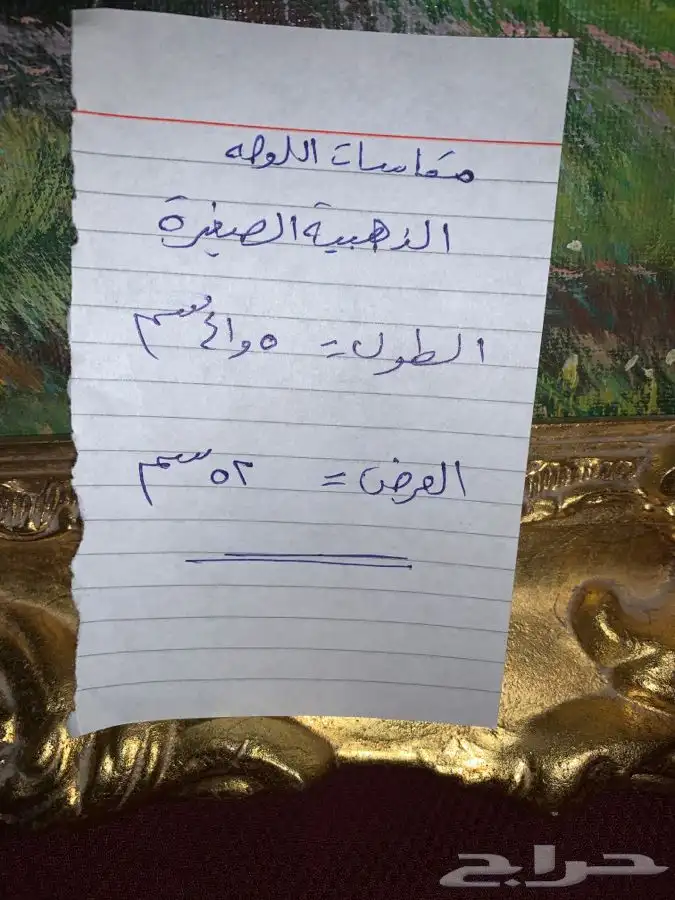 مقاسات اللوحه
الذهبية الصغيرة
الطول = سم
العرض = ٥٢ سم
حراج